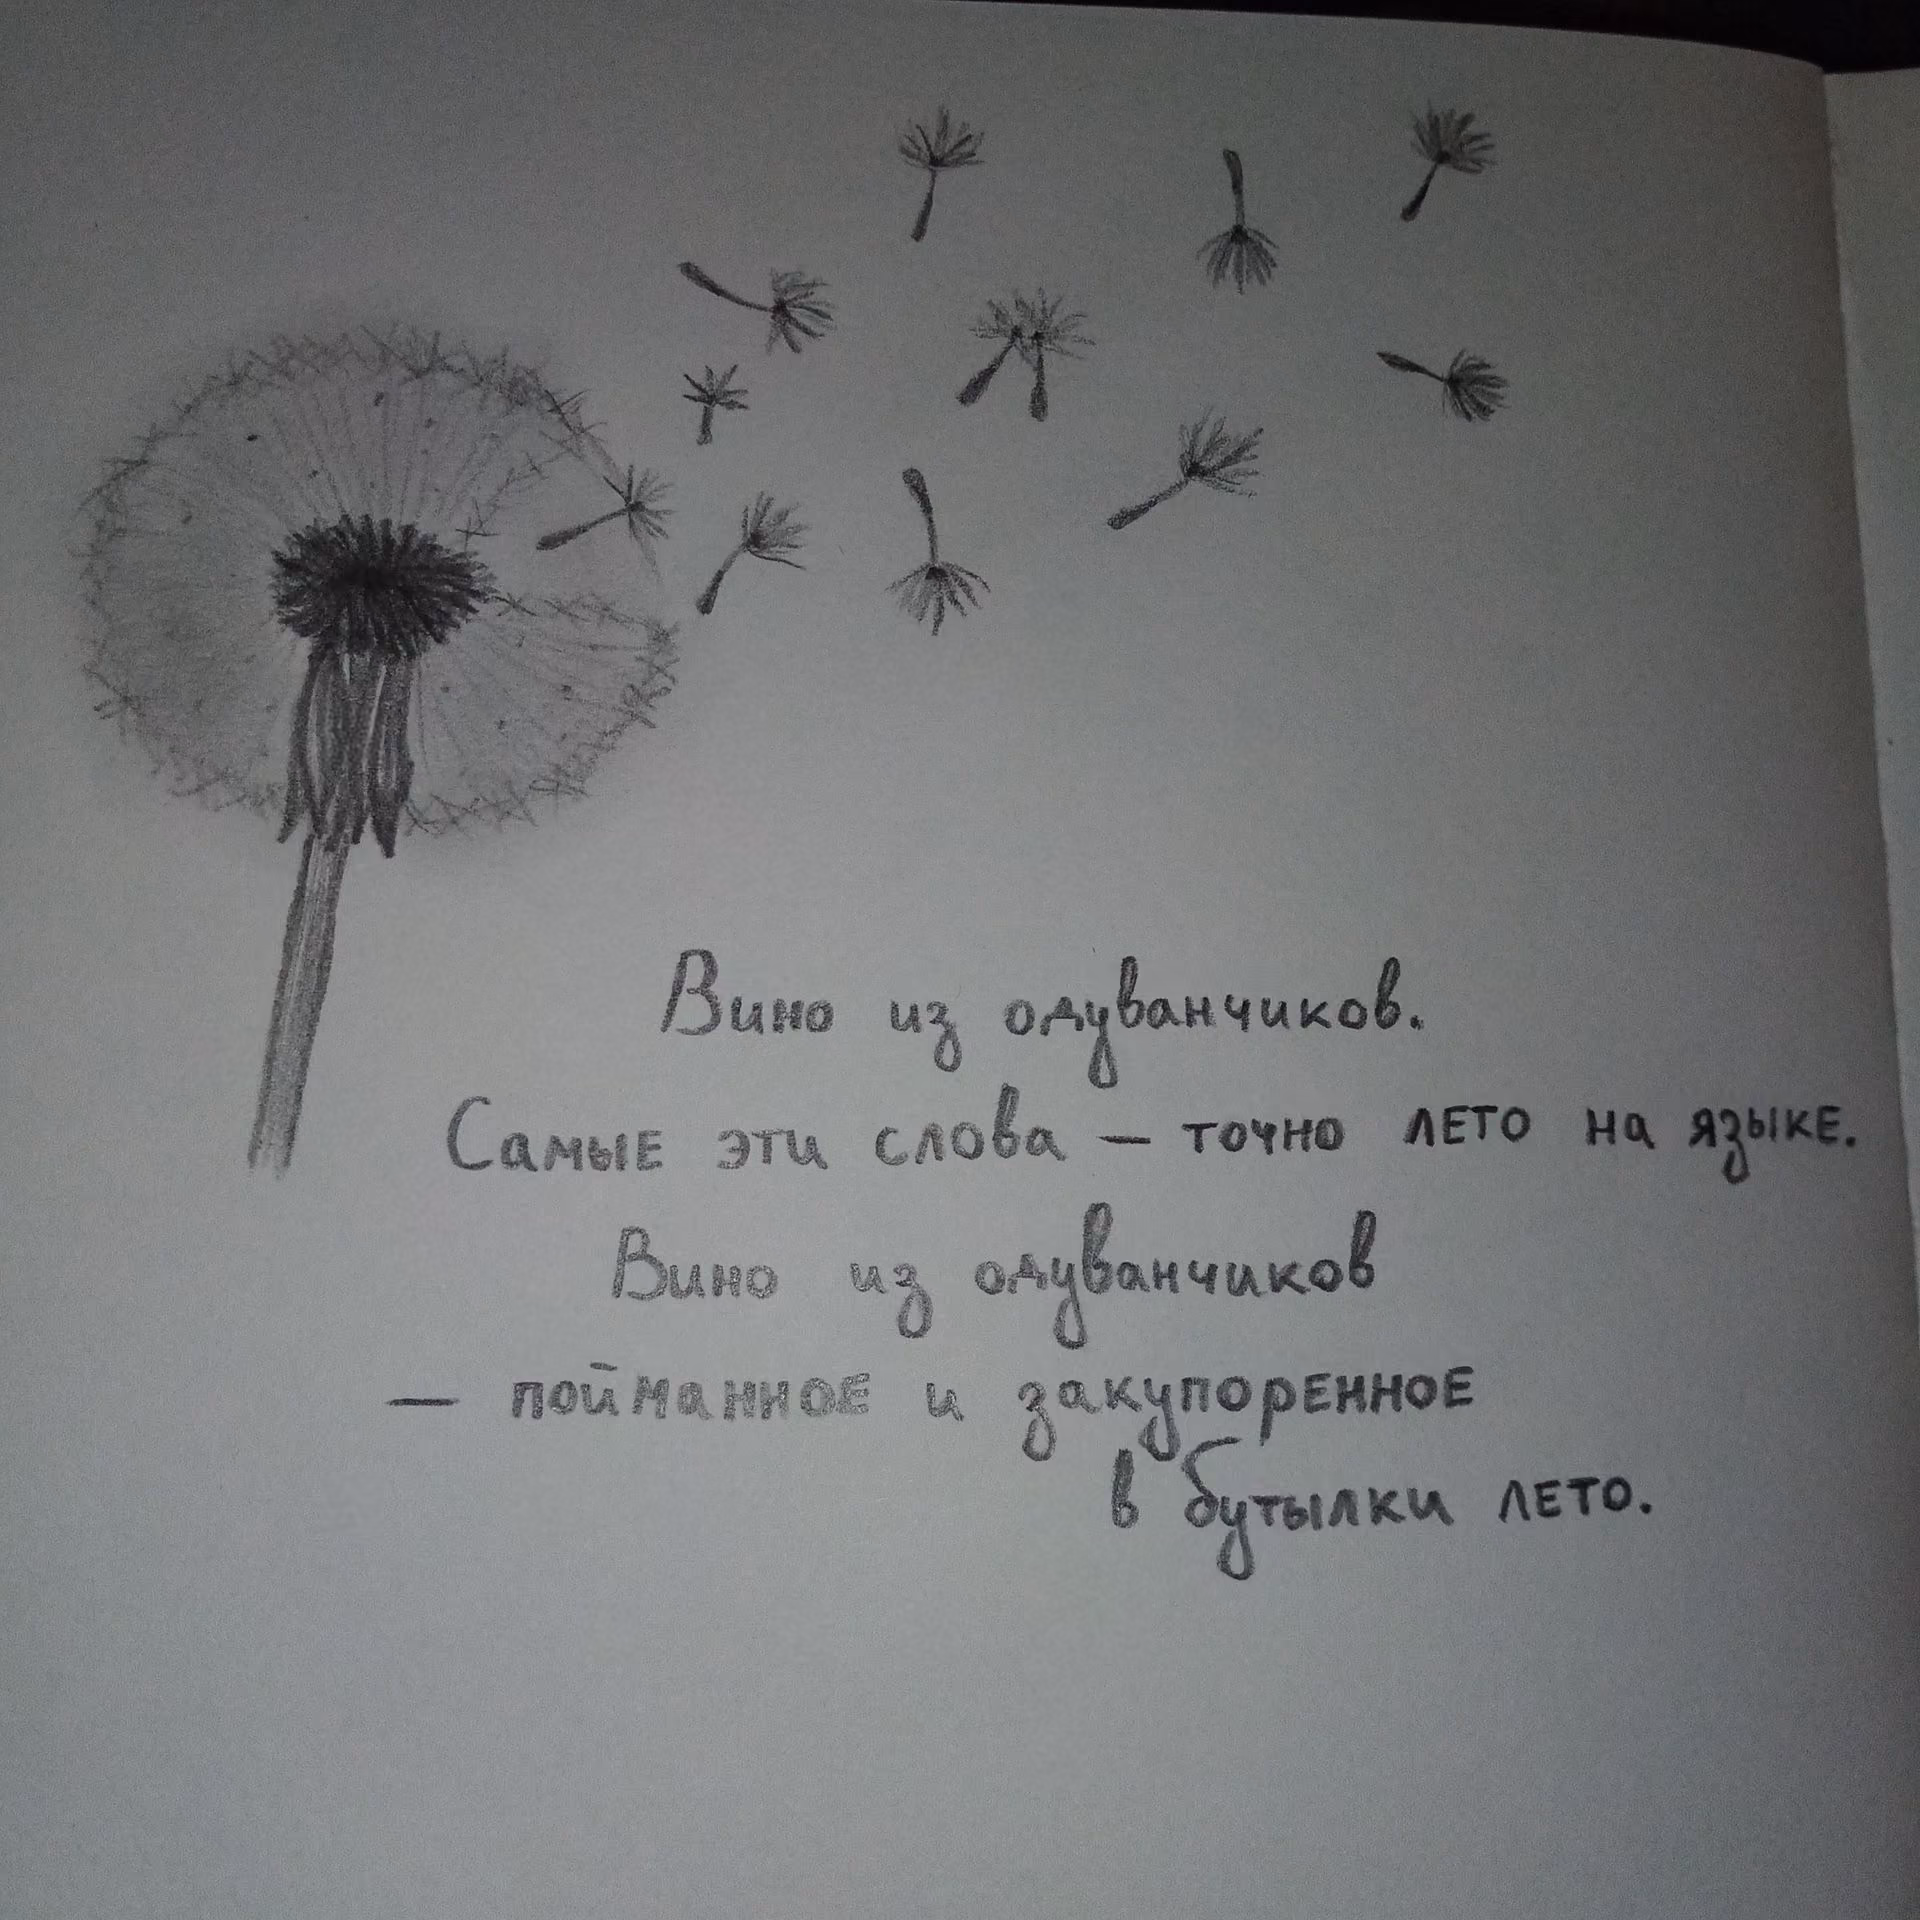 Вино из одуванчиков.
Самые эти слова — точно лето на языке.
Вино из одуванчиков
— пойманное и закупоренное
в бутылки лето.